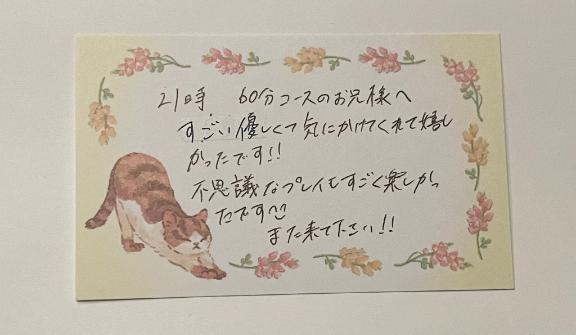 21時 60分コースのお兄様へ
すごい優しくて気にかけてくれて嬉し
かったです!!
不思議なプレイもすごく楽しかっ
たです^^
また来て下さい!!